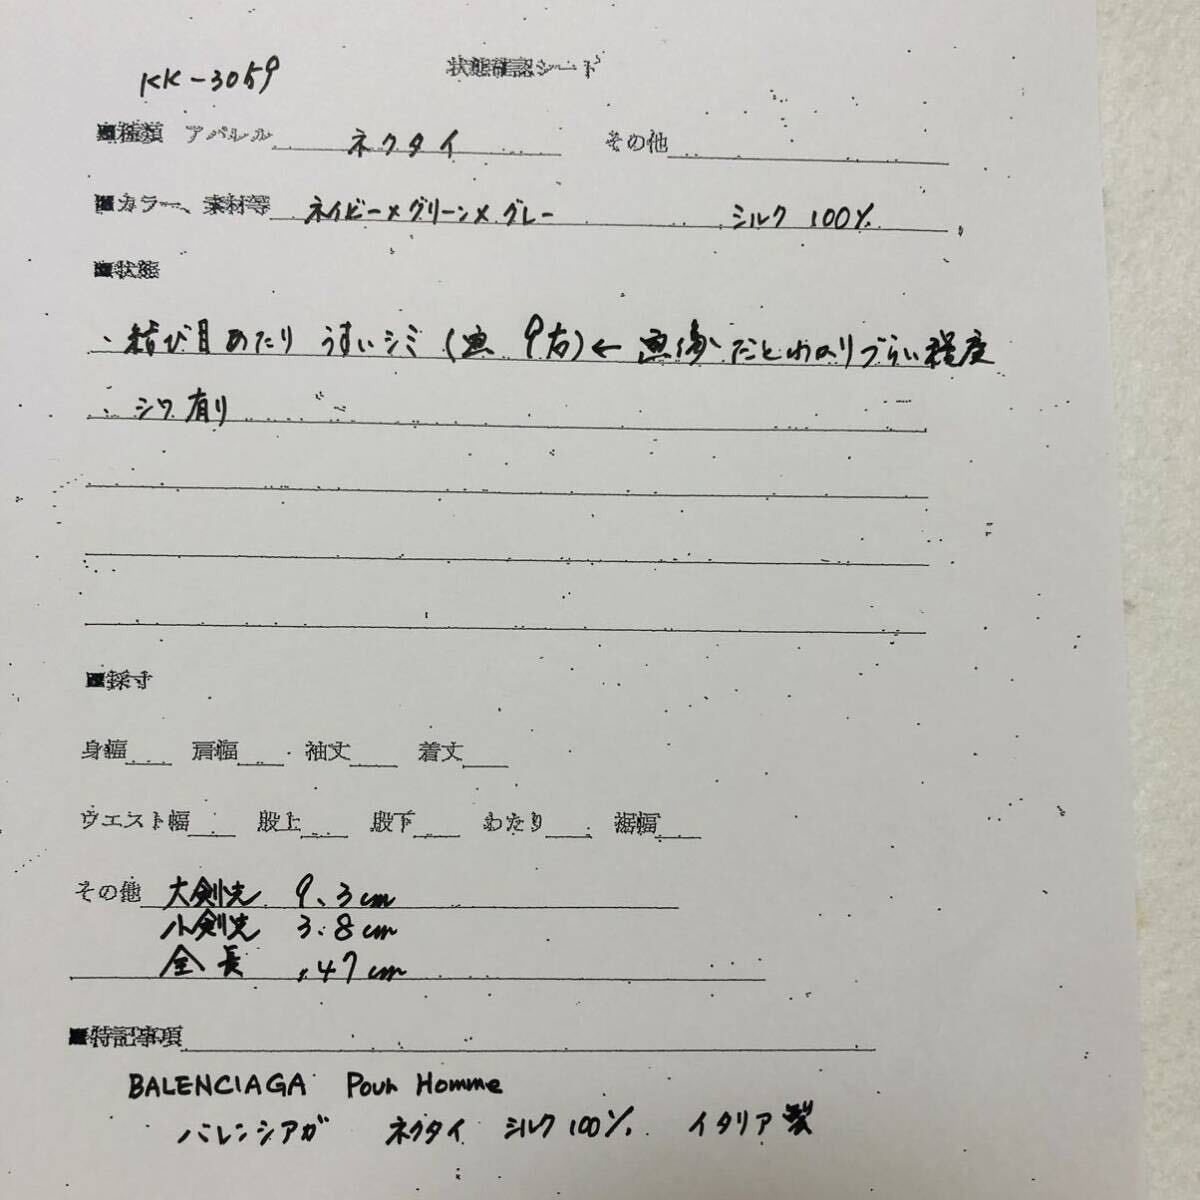 KK-3059
状態確認シート
■種類 アパレル ネクタイ その他
■カラー、素材等 ネイビー×グリーン×グレー シルク 100%
■状態
、結び目あたり うすいシミ (画 9右) ← 画像だとわかりづらい程度
、シワ有り
■採寸
身幅 肩幅 袖丈 着丈
ウエスト幅 股上 股下 わたり 裾幅
その他 大剣先 9.3cm
小剣先 3.8cm
全長 147cm
■特記事項
BALENCIAGA Pour Homme
バレンシアガ ネクタイ シルク100% イタリア製